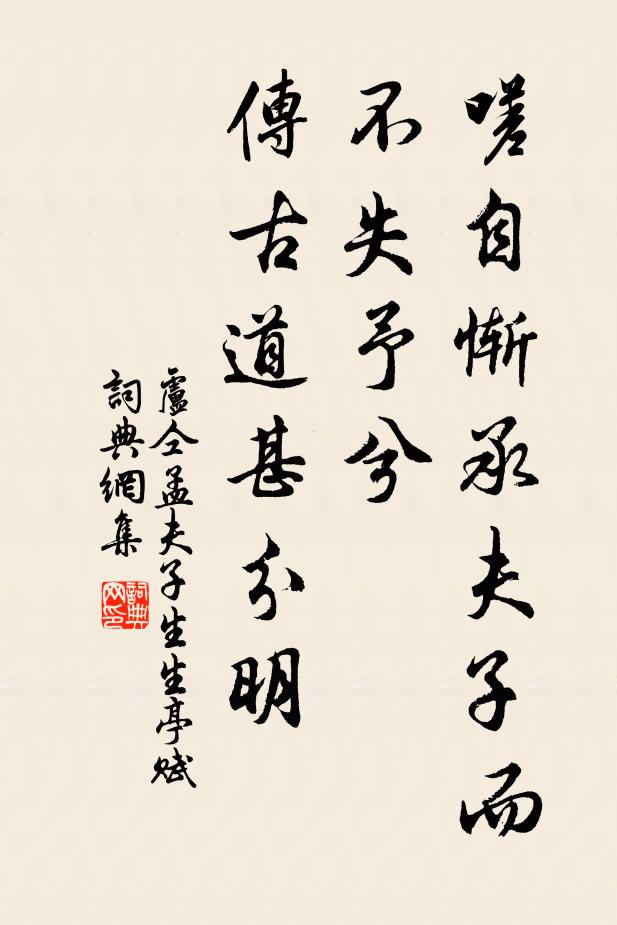 嗟自慚承夫子而
不失予兮
傳古道甚分明
盧仝孟夫子生生亭賦
詞典網集
詞典
网印